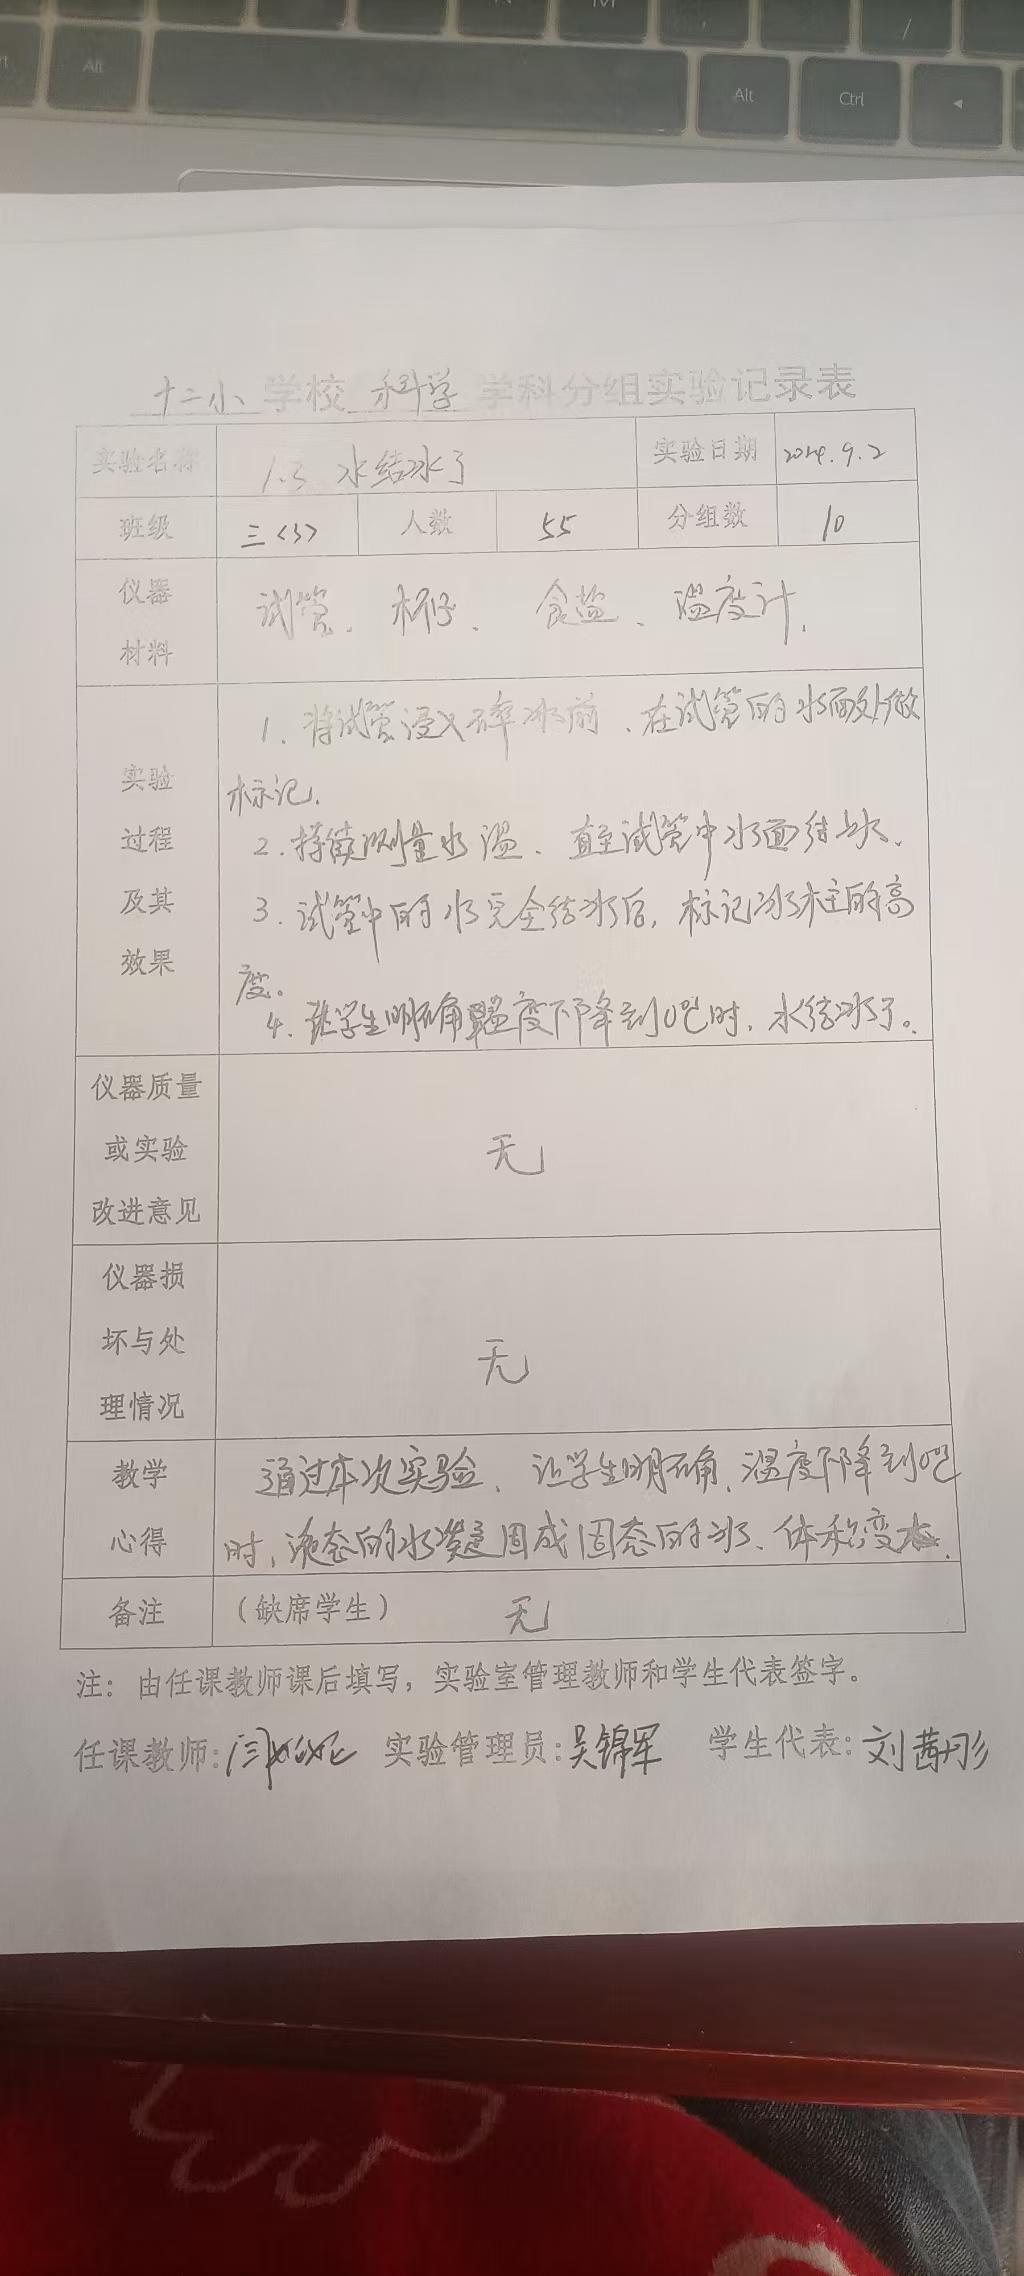 Alt
Alt
Ctrl
十二小 学校 科学 学科分组实验记录表
实验名称 1.3 水结冰了 实验日期 2024.9.2
班级 三(3) 人数 55 分组数 10
仪器材料 试管、杯子、食盐、温度计.
实验过程及其效果
1. 将试管浸入碎冰前、在试管的水面处做
标记.
2. 持续测量水温、直至试管中水面结冰.
3. 试管中的水完全结冰后, 标记冰柱的高
度。
4. 让学生明确温度下降到0℃时, 水结冰了。
仪器质量或实验改进意见 无
仪器损坏与处理情况 无
教学心得
通过本次实验、让学生明确、温度下降到0℃
时, 液态的水凝固成固态的冰、体积变大.
备注 (缺席学生) 无
注: 由任课教师课后填写, 实验室管理教师和学生代表签字。
任课教师: 实验管理员: 吴锦军 学生代表: 刘茜彤